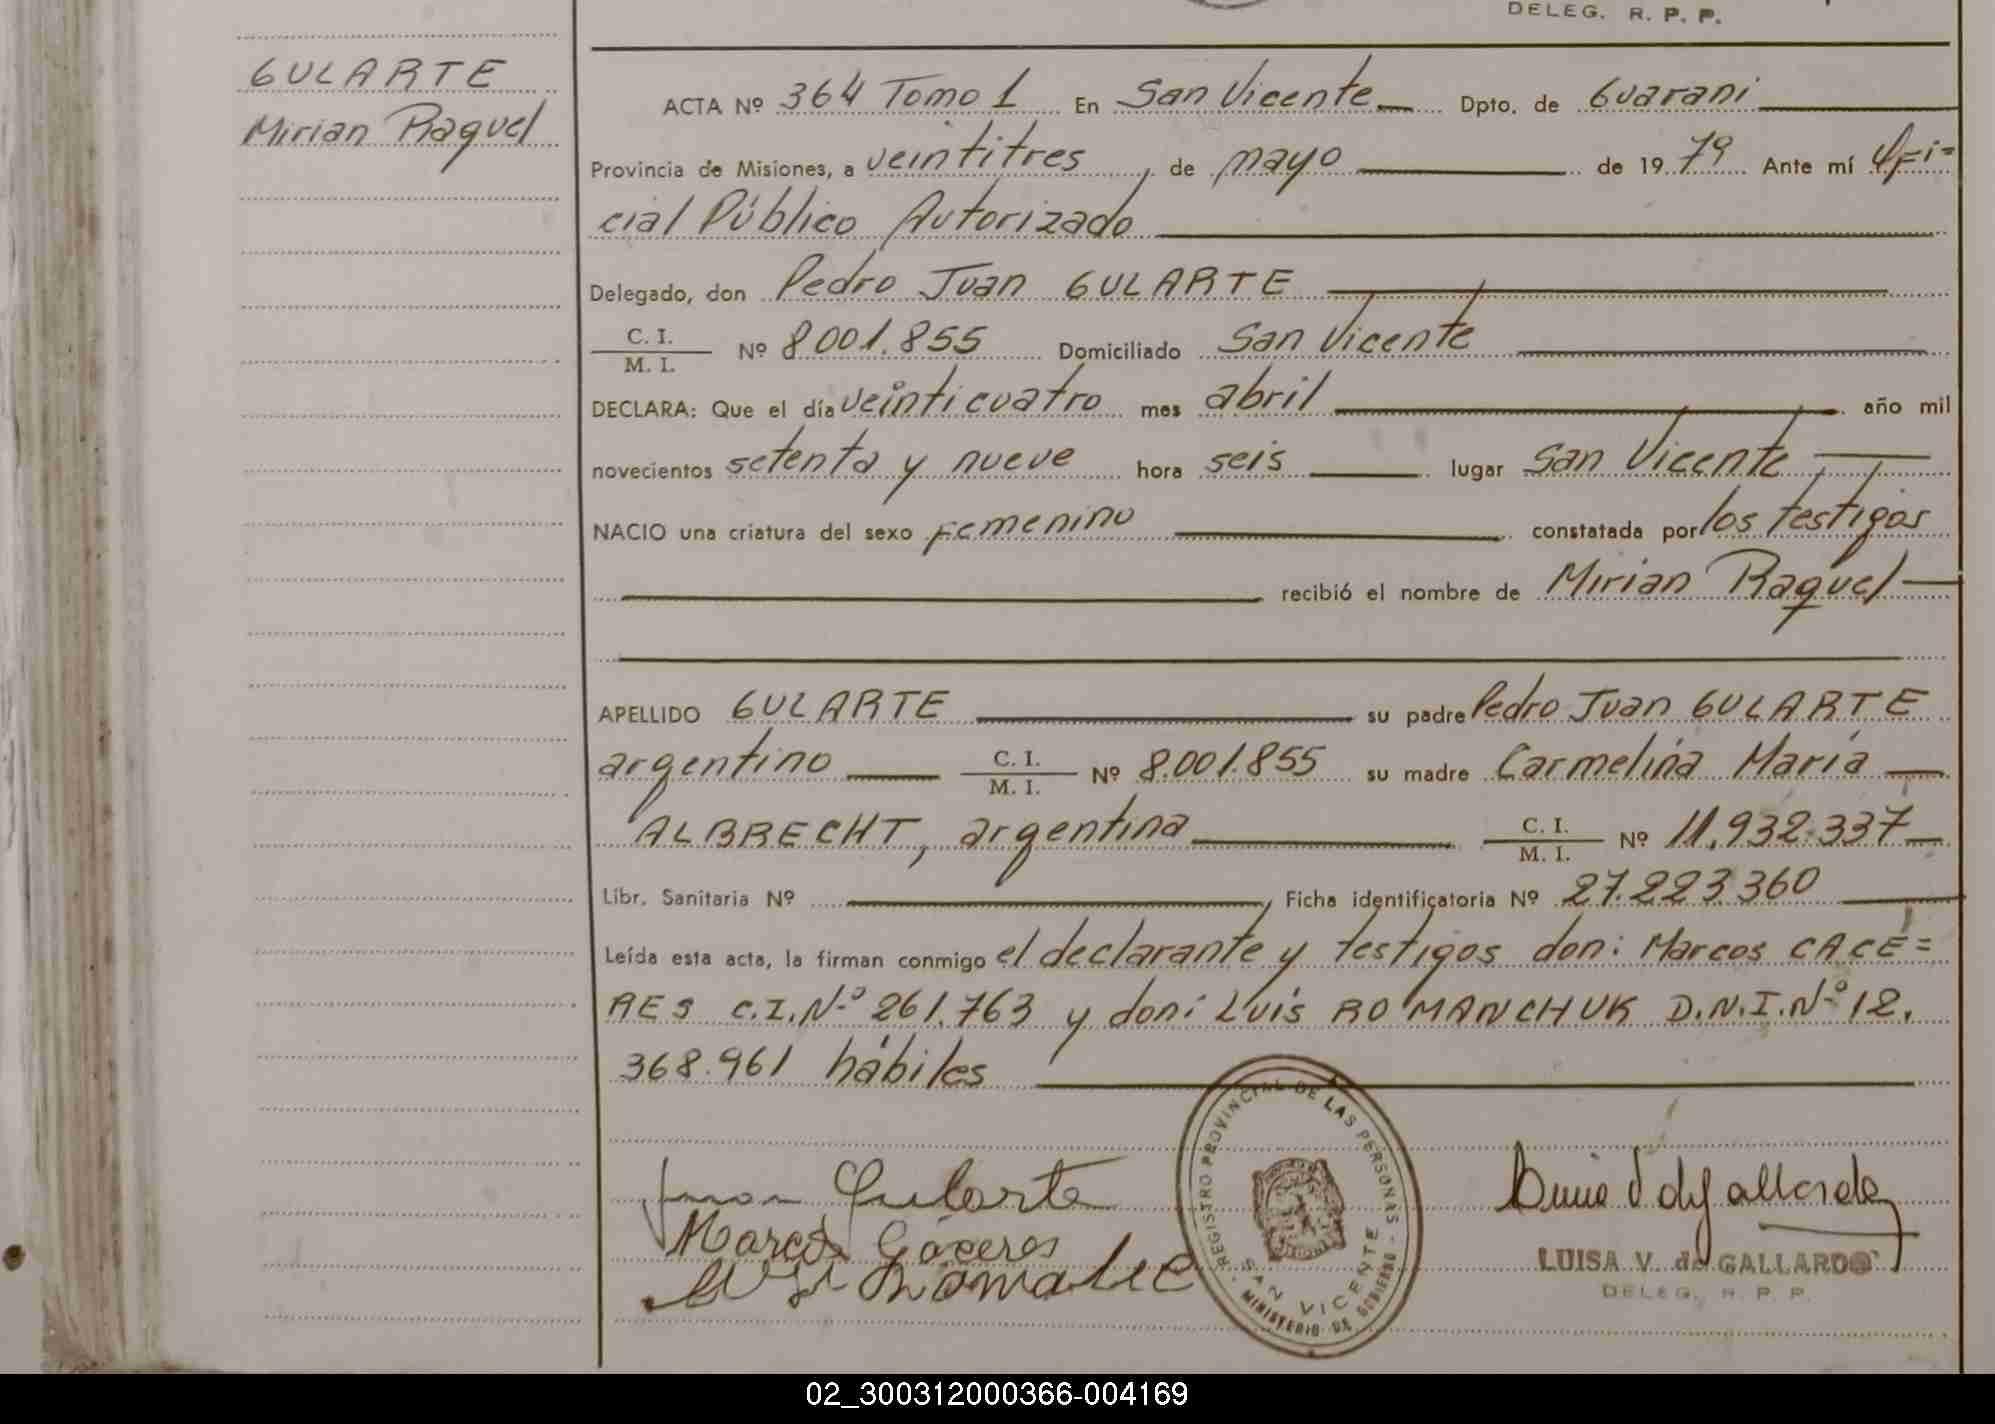 DELEG. R. P. P.
GULARTE
Mirian Raquel
ACTA Nº 364 Tomo 1 En San Vicente Dpto. de Guarani
Provincia de Misiones, a veintitres de mayo de 1979 Ante mí Ofi=
cial Público Autorizado
Delegado, don Pedro Juan GULARTE
C. I.
M. I. Nº 8001.855 Domiciliado San Vicente
DECLARA: Que el día veinticuatro mes abril año mil
novecientos setenta y nueve hora seis lugar San Vicente
NACIO una criatura del sexo Femenino constatada por los testigos
recibió el nombre de Mirian Raquel
APELLIDO GULARTE su padre Pedro Juan GULARTE
argentino C. I. M. I. Nº 8.001.855 su madre Carmelina María
ALBRECHT, argentina C. I. M. I. Nº 11.932.337
Libr. Sanitaria Nº Ficha identificatoria Nº 27.223.360
Leída esta acta, la firman conmigo el declarante y testigos don: Marcos CACE=
RES C.I.Nº 261.763 y don: Luis ROMANCHUK D.N.I.Nº 12.
368.961 hábiles
Juan Gularte
Marcos Cáceres
REGISTRO PROVINCIAL DE LAS PERSONAS
SAN VICENTE
MINISTERIO DE GOBIERNO
LUISA V. de GALLARDO
DELEG. R. P. P.
02_300312000366-004169